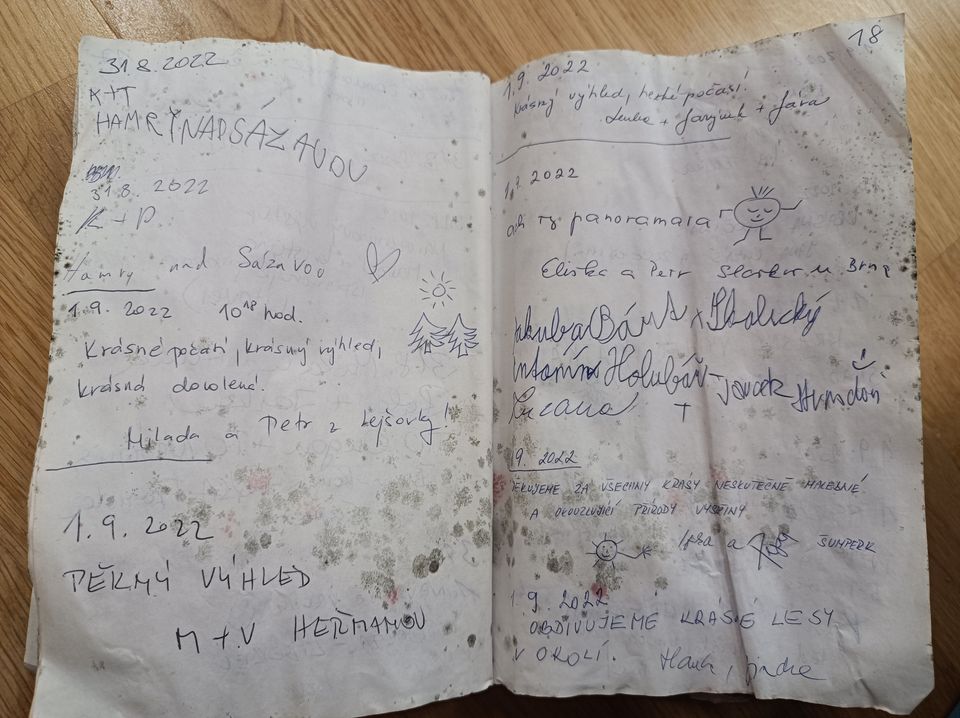 31.8.2022
K+T
HAMRYNADSÁZAVOU
31.8.2022
K+P
Hamry nad Sázavou
1.9.2022 10 hod.
Krásné počasí, krásný výhled,
krásná dovolená.
Milada a Petr z Lejšovky!
1.9.2022
PĚKNÝ VÝHLED
M+V HEŘMANOV
18
1.9.2022
Krásný výhled, hezké počasí!
Lenka + + Jára
1.9.2022
ach ty panoramata
Eliška a Petr u Brna
Jakub a Bára
Antonín Holubář
Zuzana +
1.9. 2022
DĚKUJEME ZA VŠECHNY KRÁSY NESKUTEČNĚ MALEBNÉ
A OKOUZLUJÍCÍ PŘÍRODY VYSOČINY
a ŠUMPERK
1.9.2022
OBDIVUJEME KRÁSÉ LESY
V OKOLÍ.